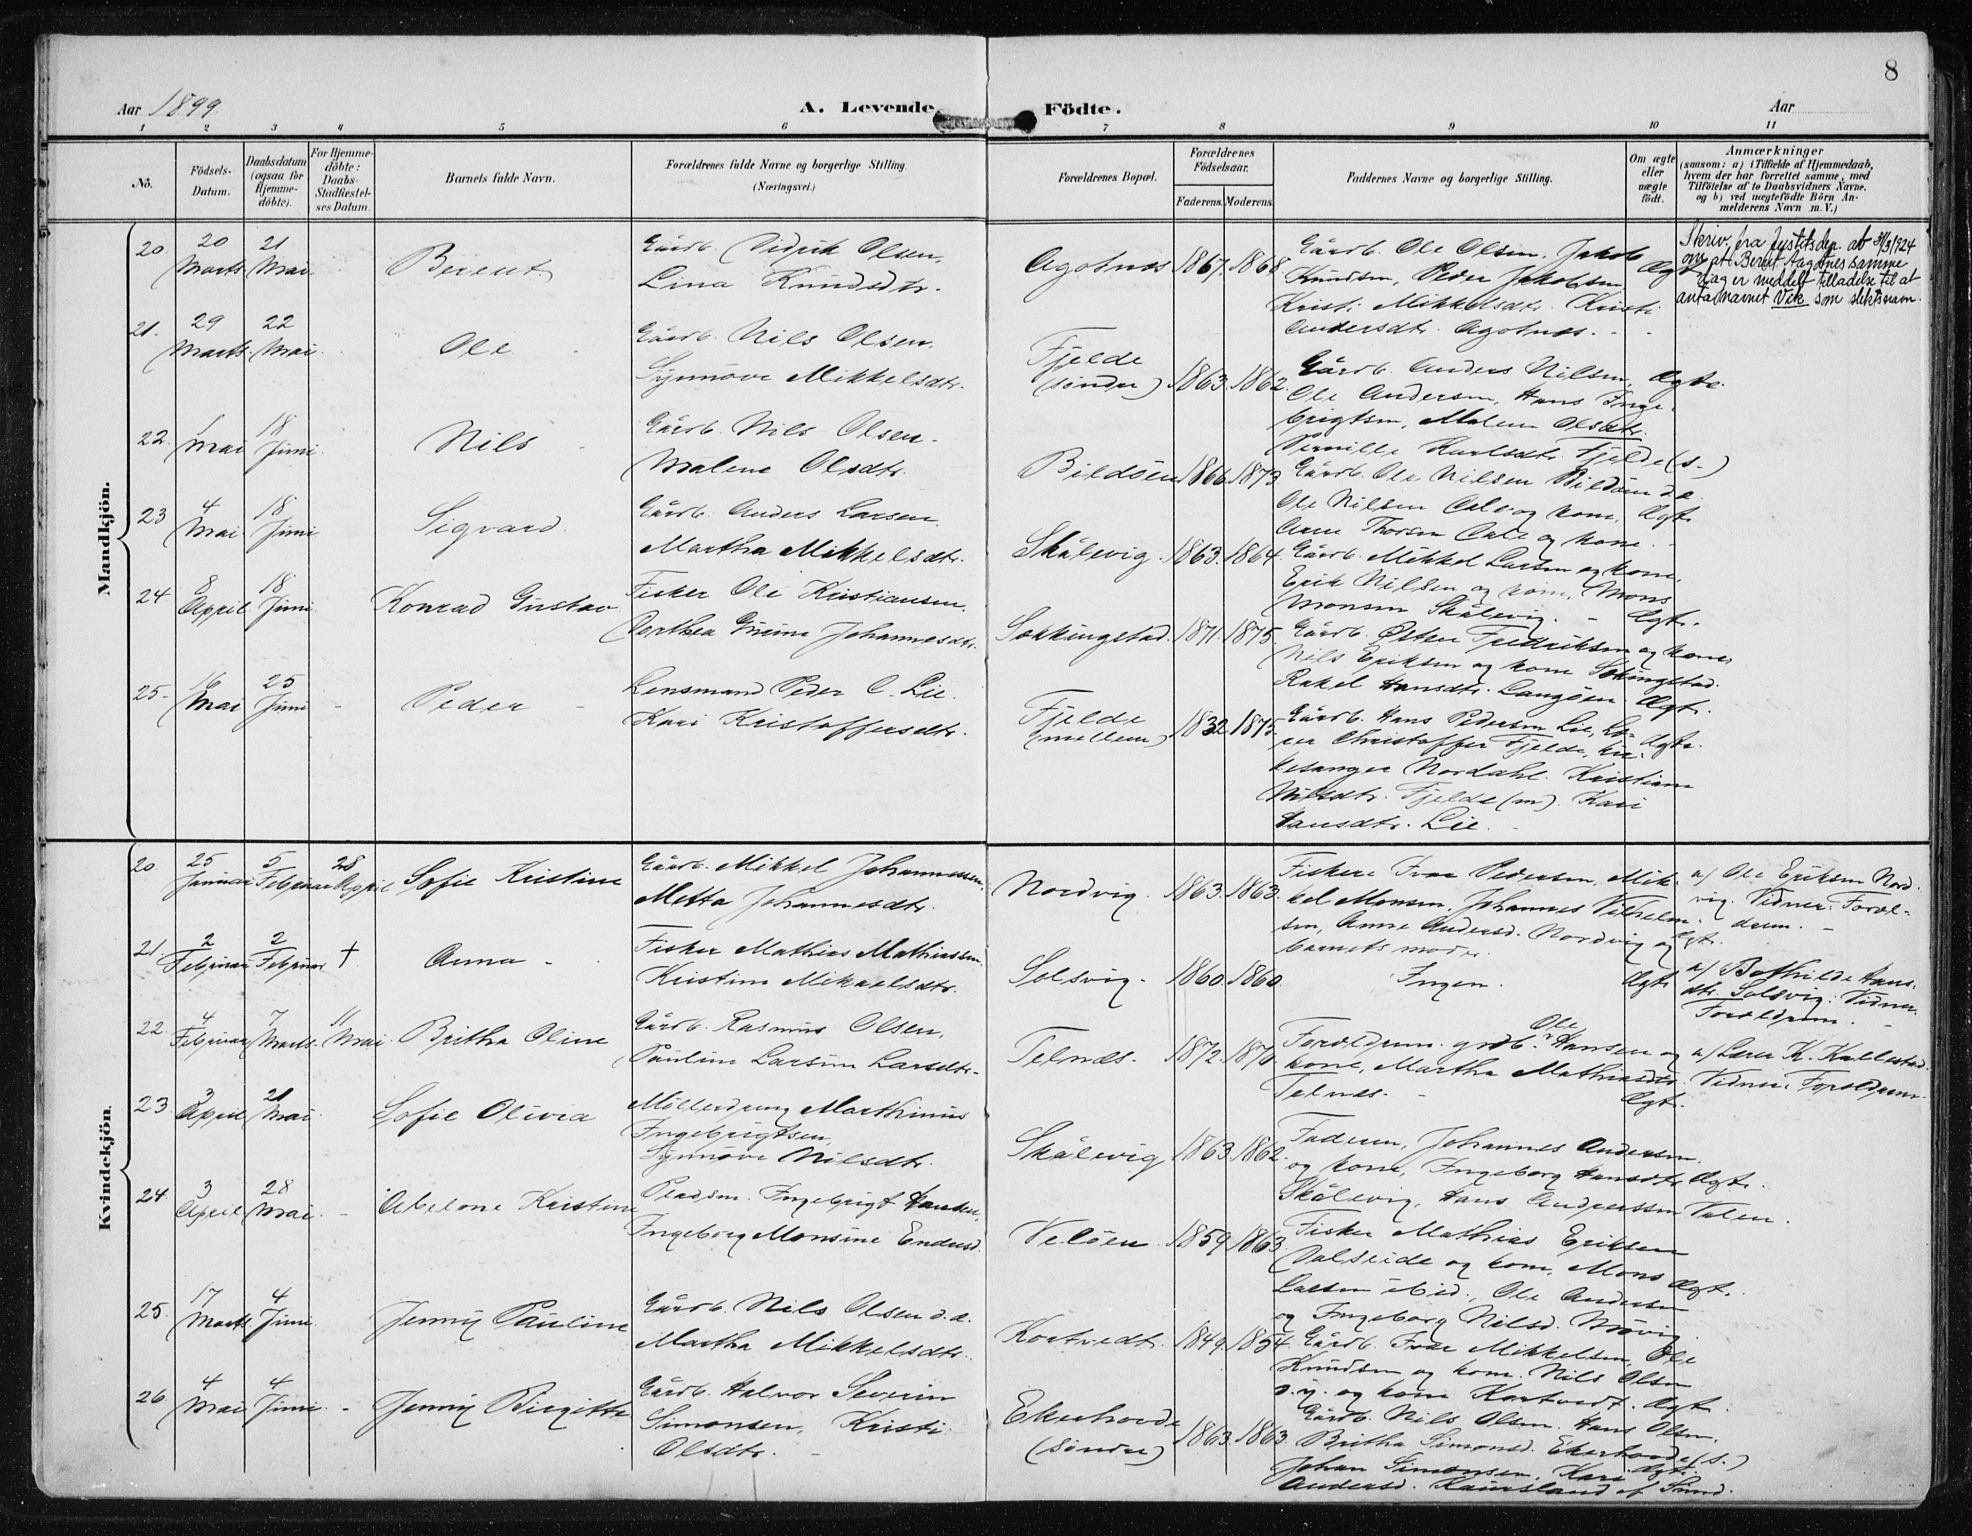 8
Aar 1899.
A. Levende Födte.
Aar
1 2 3 4 5 6 7 8 9 10 11
No.
Födsels-Datum.
Daabsdatum (ogsaa for Hjemme-döbte).
For Hjemme-döbte: Daabs-Stadfæstel-ses Datum.
Barnets fulde Navn.
Forældrenes fulde Navne og borgerlige Stilling. (Næringsvei.)
Forældrenes Bopæl.
Forældrenes Födselsaar.
Faderens. Moderens.
Faddernes Navne og borgerlige Stilling.
Om ægte eller uægte födt.
Anmærkninger
(saasom: a) i Tilfælde af Hjemmedaab,
hvem der har forrettet samme, med
Tilföielse af to Daabsvidners Navne,
og b) ved uægtefödte Börn An-
melderens Navn m. V.)
Mandkjön.
20. 20 Marts 21 Mai Berent
Gårdb. Didrik Olsen,
Lina Knudsdtr.
Agotnes 1867. 1868.
Gårdb. Ole Olsen, Jakob
Knudsen, Peder Jakobsen
Kristi Mikkelsdtr. Kristi
Andersdtr. Agotnes.
Ægte
Skriv. fra Justitsdep. av 31/3 1924
om at Berent Aagotnes samme
dag er meddelt tilladelse til at
anta navnet Vik som slektsnavn.
21. 29 Marts. 22 Mai Ole
Gårdb. Nils Olsen,
Synnøve Mikkelsdtr.
Fjelde (søndre) 1863. 1862.
Gårdb. Anders Nilsen,
Ole Andersen, Hans Inge-
brigtsen, Malene Olsdtr.
Pernille Karlsdtr. Fjelde (s.)
Ægte.
22. 1 Mai 18 Juni Nils
Gårdb. Nils Olsen.
Malene Olsdtr.
Bildöen 1866. 1873
Gårdb. Ole Nilsen Bildöen d.e.
Ole Nilsen Cale og kone,
Arne Thorsen Cale og kone
Ægte.
23 4 Mai 18 Juni Sigvard
Gårdb. Anders Larsen,
Martha Mikkelsdtr.
Skålevig. 1863. 1864.
Gårdb. Mikkel Larsen og kone,
Erik Nilsen og kone, Mons
Monsen Skålevig.
Ægte.
24. 8 April 18 Juni Konrad Gustav
Fisker Ole Kristiansen,
Dorthea Johannesdtr.
Sokkingstad. 1871. 1875.
Gårdb. Østen Fredriksen og kone,
Nils Eriksen og kone Sokingstad.
Rakel Hansdtr. Langöen
Ægte.
25. 16 Mai 25 Juni Peder
Lensmand Peder C. Lie.
Kari Kristoffersdtr.
Fjelde (mellem) 1832. 1875.
Gårdb. Hans Pedersen Lie, Læ-
rer Christoffer Fjelde, kir-
kesanger Nordahl. Kristiane
Nilsdtr. Fjelde (m). Kari
Hansdtr. Lie.
Ægte.
Kvindekjön.
20. 25 Januar 5 Februar 28 April Sofie Kristine
Gårdb. Mikkel Johannessen,
Metta Johannesdtr.
Nordvig. 1863. 1863.
Fiskere Ivar Pedersen, Mik-
kel Monsen, Johannes Vilhelm-
sen, Anne Andersd. Nordvig og
barnets moder.
Ægte.
a/ Ole Eriksen Nord-
vig. Vidner: Foræl-
drene.
21. 2 Februar 2 Februar † Anna
Fisker Mathias Mathiassen,
Kristine Mikaelsdtr.
Solsvig. 1860. 1860.
Ingen.
Ægte
a/ Bothilde Hans-
dtr. Solsvig. Vidner
Forældrene.
22 4 Februar 7 Marts. 11 Mai. Britha Oline
Gårdb. Rasmus Olsen,
Pauline Larsine Larsdtr.
Telnæs. 1872. 1870.
Forældrene. grdb. Ole Hansen og
kone, Martha Mathiasdtr.
Telnes.
Ægte.
a/ Lærer K. Kallestad.
Vidner: Forældrene.
23 3 April 21 Mai Sofie Olivia
Möllerdreng Marthinus
Ingebrigtsen,
Synnøve Nilsdtr.
Skålevig 1863. 1862.
Faderen, Johannes Andersen
og kone, Ingeborg Hansdtr.
Skålevig, Hans Anderssen Tolen.
Ægte.
24. 3 April 28 Mai. Abelone Kristine
Pladsm. Ingebrigt Hansen,
Ingeborg Monsine Endersd.
Velöen 1859. 1863.
Fisker Mathias Eriksen
Valseide og kone, Mons
Larsen ibid., Ole Andersen
og Ingeborg Nilsd. Møvig.
Ægte.
25. 17 Marts 4 Juni Jenny Pauline
Gårdb. Nils Olsen d.æ.
Martha Mikkelsdtr.
Kortvedt. 1849. 1854.
Gårdb. Ivar Mikkelsen, Ole
Knudsen og kone. Nils Olsen
d.y. og kone Kortvedt.
Ægte.
26 4 Mai 4 Juni. Jenny Birgitte
Gårdb. Halvor Severin
Simonsen, Kristi
Olsdtr.
Ekerhovde (søndre) 1863. 1863.
Gårdb. Nils Olsen. Hans Olsen,
Britha Simonsd. Ekerhovde (s.)
Johan Simonsen, Kari
Andersd. af Sund.
Ægte.